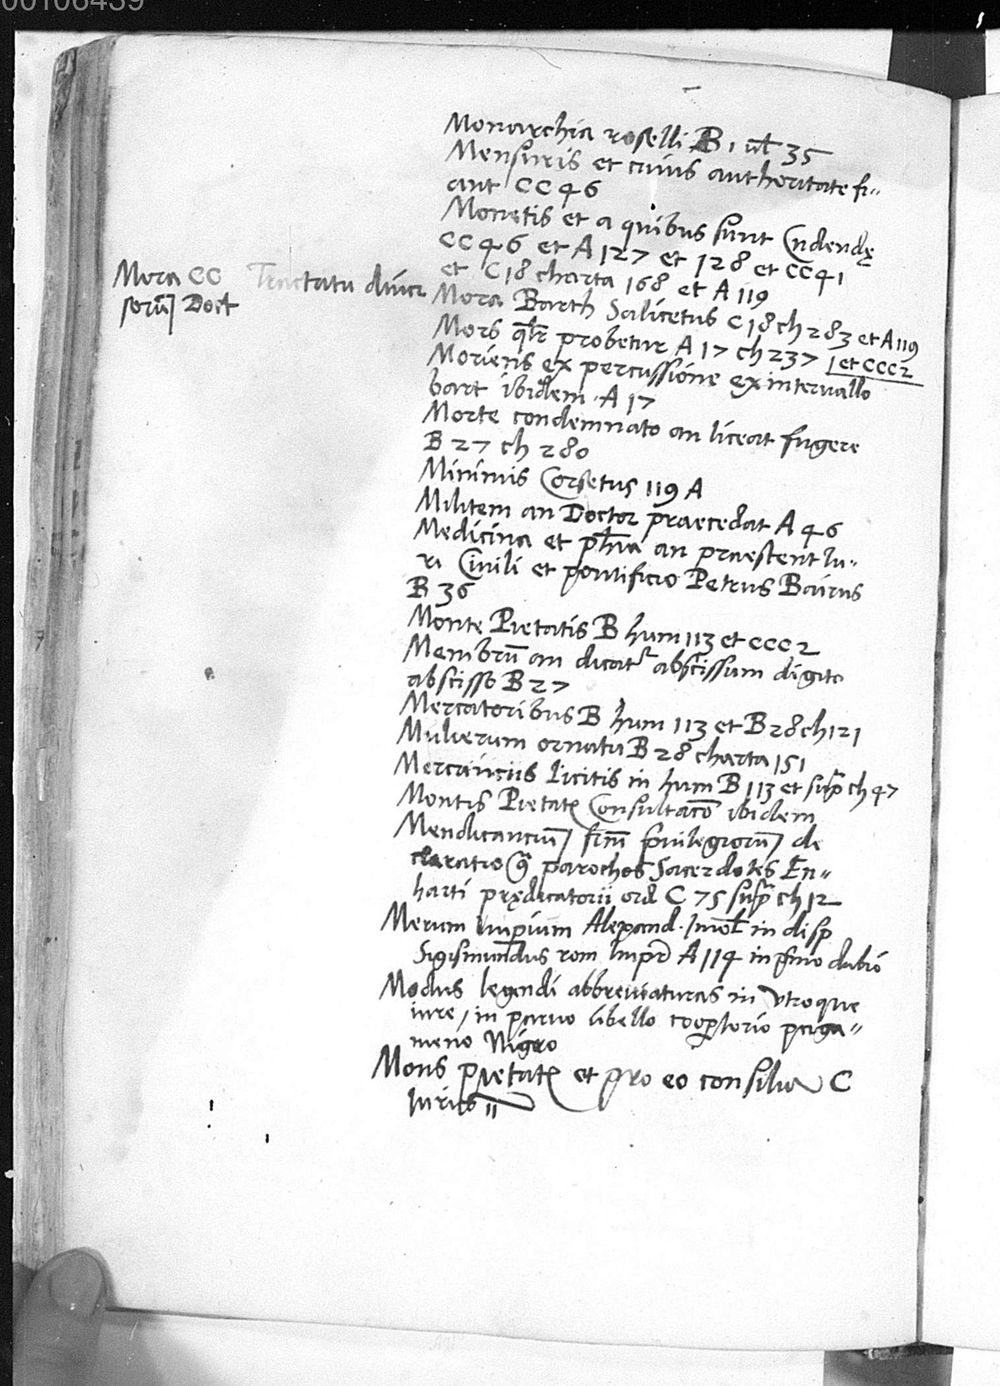 00106439
Monarchia roselli B 1 vel 35
Mensuris et cuius autheritate fi-
ant CC 46
Monetis et a quibus sunt Cudendę
CC 46 et A 127 et 128 et CC 41
et C 18 charta 168 et A 119
Mora CC Tractatu diver
sorũ Doct
Mora Barth Salicetus C 18 ch 283 et A 119
Mors qlr probetur A 17 ch 237 | et CCC 2
Moriens ex percussione ex intervallo
bart ibidem. A 17
Morte condemnato an liceat fugere
B 27 ch 280
Minimis Corsetus 119 A
Militem an Doctor praecedat A 46
Medicina et phia an praestent Iu-
ri Civili et pontificio Petrus Bairus
B 36
Monte Pietatis B hum 113 et CCC 2
Membrũ an dicatr abscissum digito
abscisso B 27
Mercatoribus B hum 113 et B 28 ch 121
Mulierum ornatu B 28 charta 151
Mercanciis licitis in hum B 113 et supr ch 47
Montis Pietatis Consultaco ibidem
Mendicanciũ frm privilegiorũ de
claratio parochos Sacerdotes En-
harti prędicatorii ord C 75 supr ch 12
Merum Imperium Alexand. Imol in disp
Sigismundus rom Impr A 114 in primo dubio
Modus legendi abbreviaturas in Vtroque
iure, in parvo libello coopertorio perga-
meno Nigro
Mons pietatis et pro eo consilia C
Iurico 11